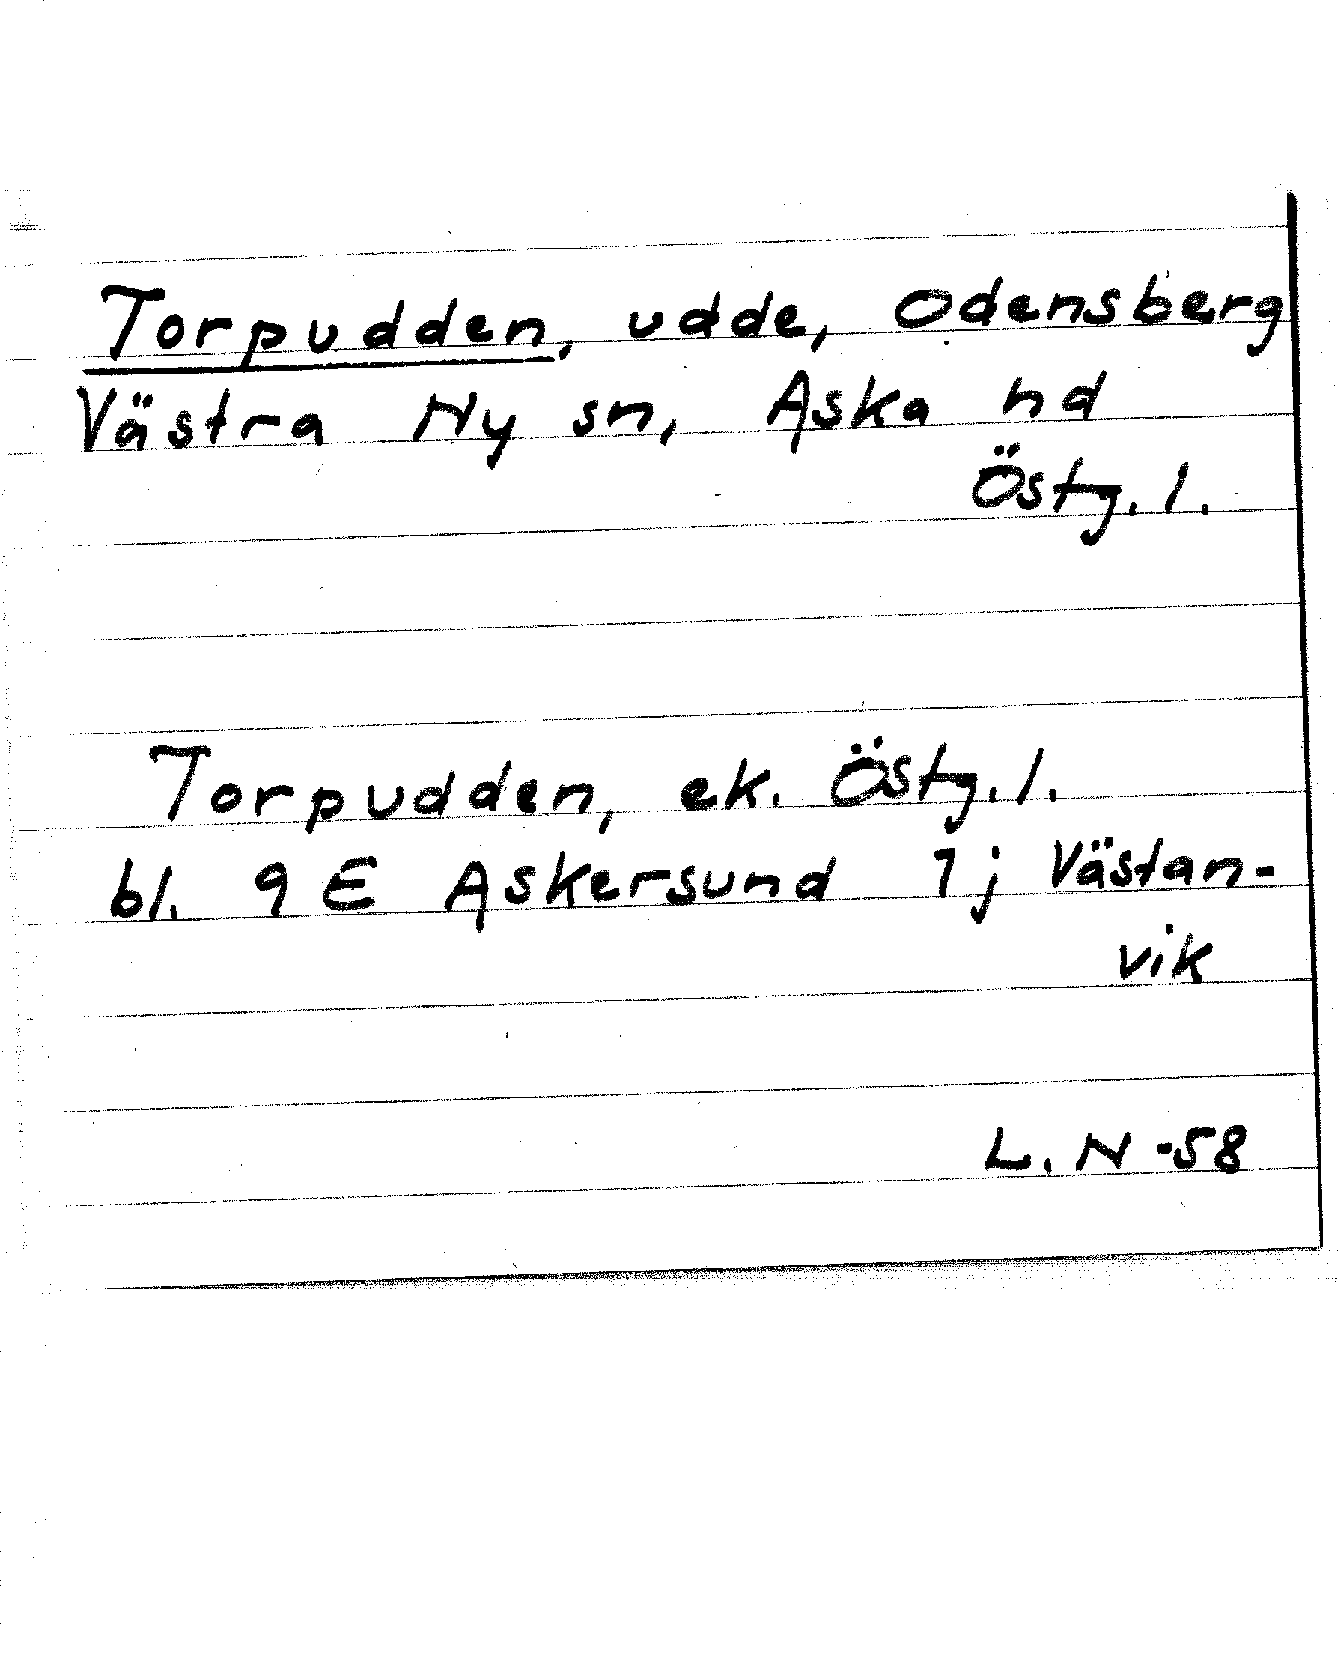 Torpudden, udde, Odensberg
Västra Ny sn, Aska hd
Östg. l.
Torpudden, ek. Östg. l.
bl. 9 E Askersund 1 j Västan-
vik
L. N -58